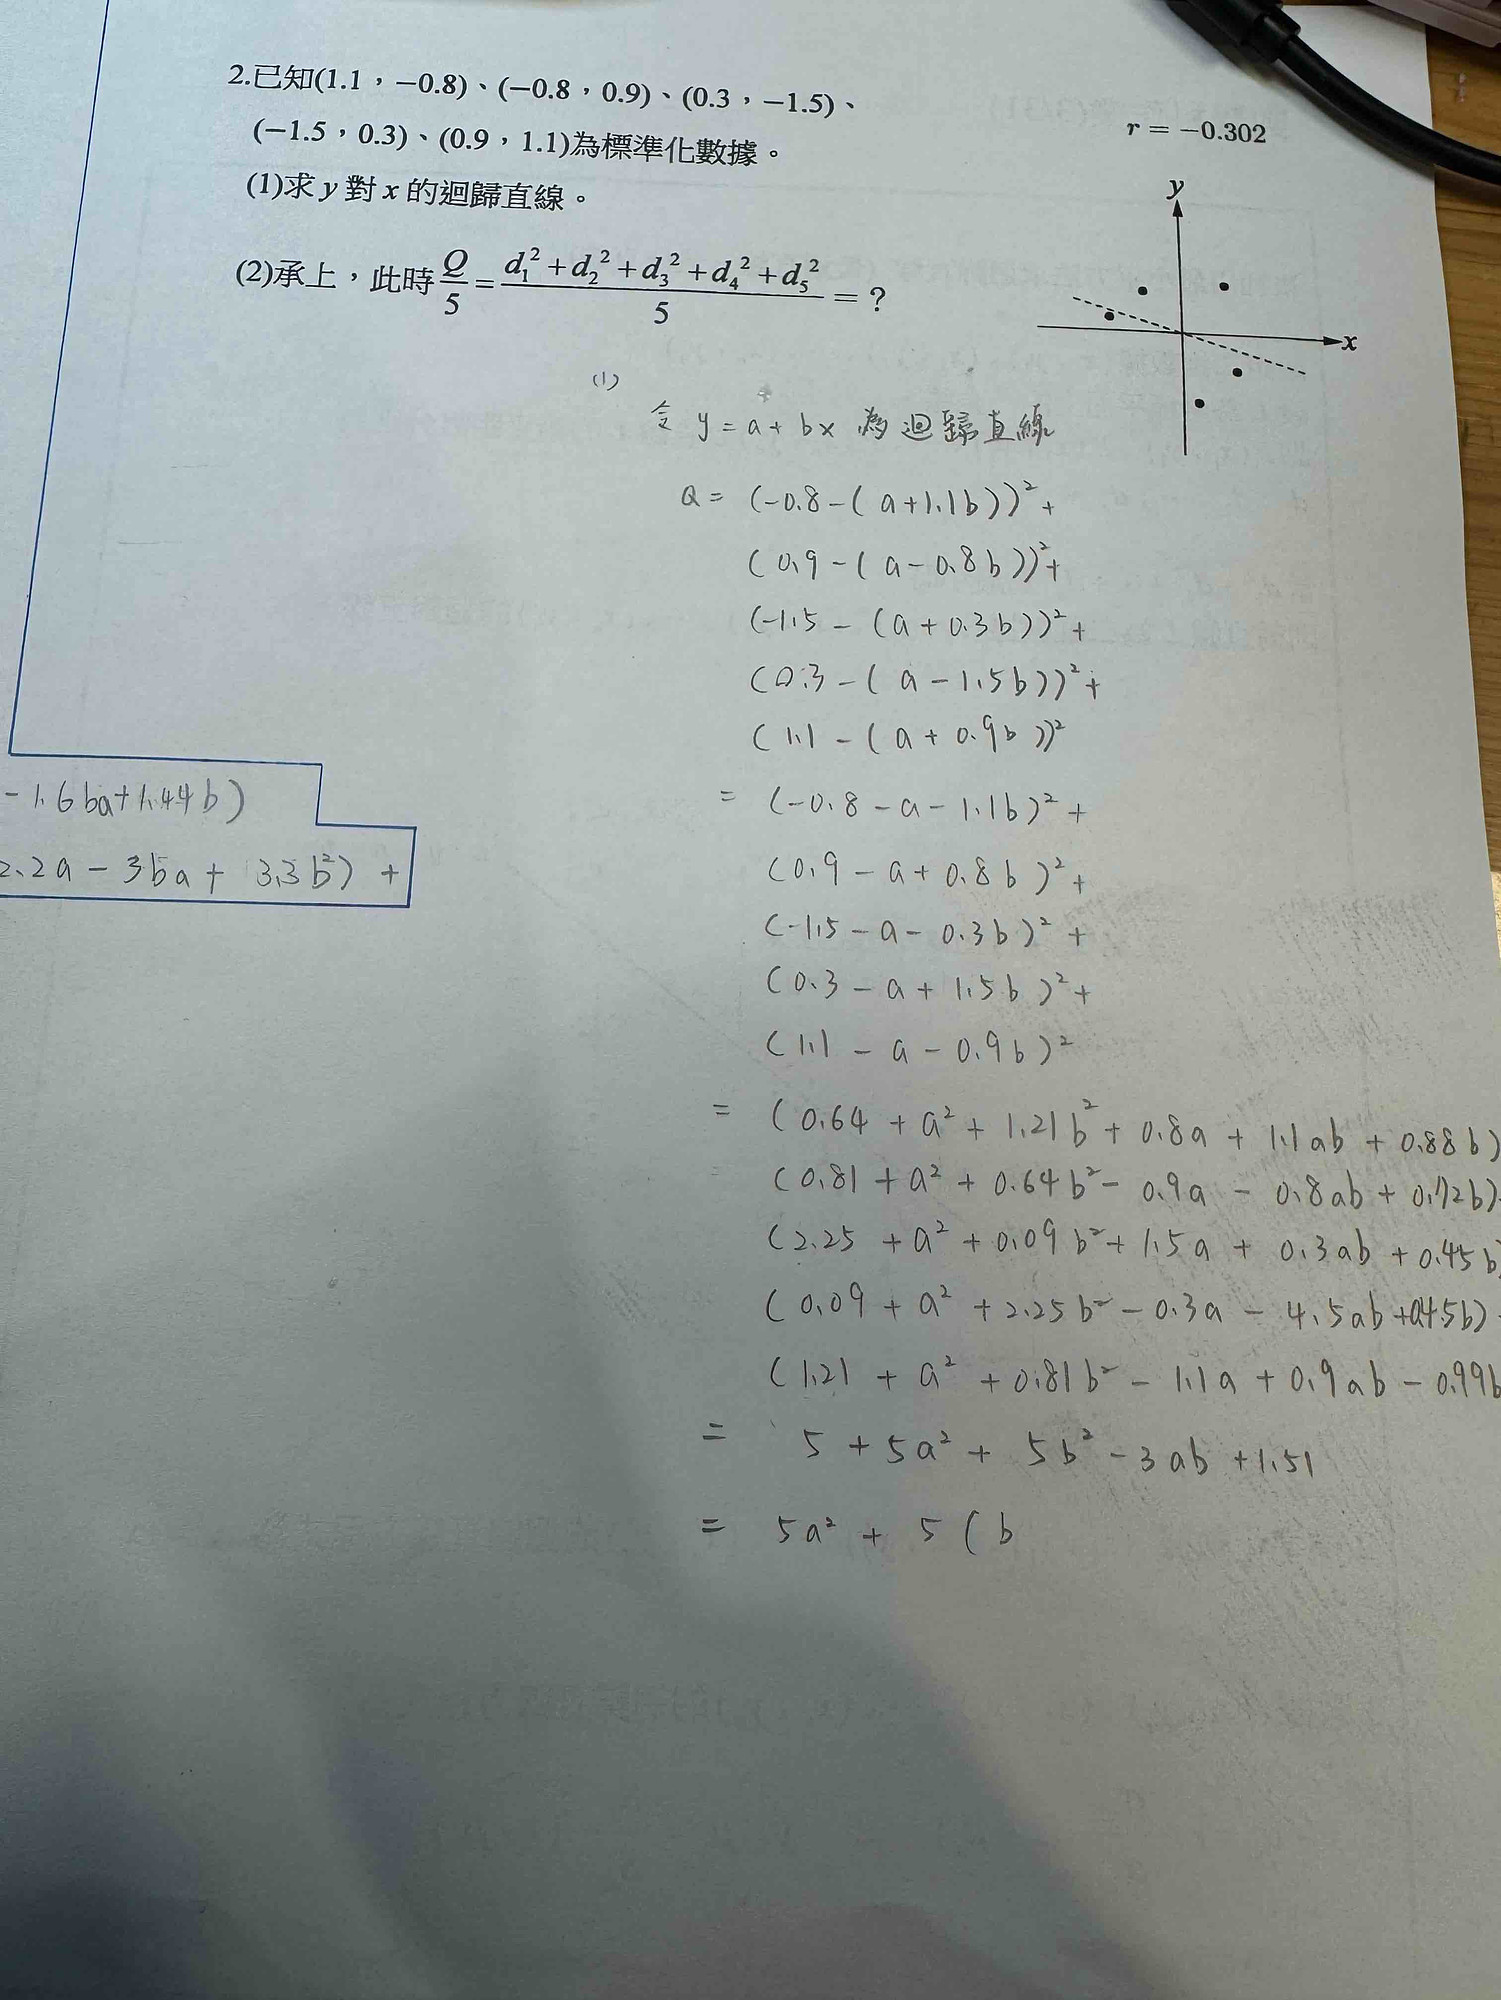 2.已知(1.1，−0.8)、(−0.8，0.9)、(0.3，−1.5)、
(−1.5，0.3)、(0.9，1.1)為標準化數據。
r = −0.302
(1)求 y 對 x 的迴歸直線。
(2)承上，此時 Q/5 = (d₁² + d₂² + d₃² + d₄² + d₅²)/5 = ？
y
x
(1)
令 y = a + bx 為迴歸直線
Q = (-0.8-(a+1.1b))² +
(0.9-(a-0.8b))² +
(-1.5-(a+0.3b))² +
(0.3-(a-1.5b))² +
(1.1-(a+0.9b))²
= (-0.8-a-1.1b)² +
(0.9-a+0.8b)² +
(-1.5-a-0.3b)² +
(0.3-a+1.5b)² +
(1.1-a-0.9b)²
= (0.64+a²+1.21b²+0.8a+1.1ab+0.88b)
(0.81+a²+0.64b²-0.9a-0.8ab+0.72b)
(2.25+a²+0.09b²+1.5a+0.3ab+0.45b
(0.09+a²+2.25b²-0.3a-4.5ab+0.45b)
(1.21+a²+0.81b²-1.1a+0.9ab-0.99b
= 5+5a²+5b²-3ab+1.51
= 5a²+5(b
-1.6ba+1.44b)
2.2a-3ba+3.3b²)+